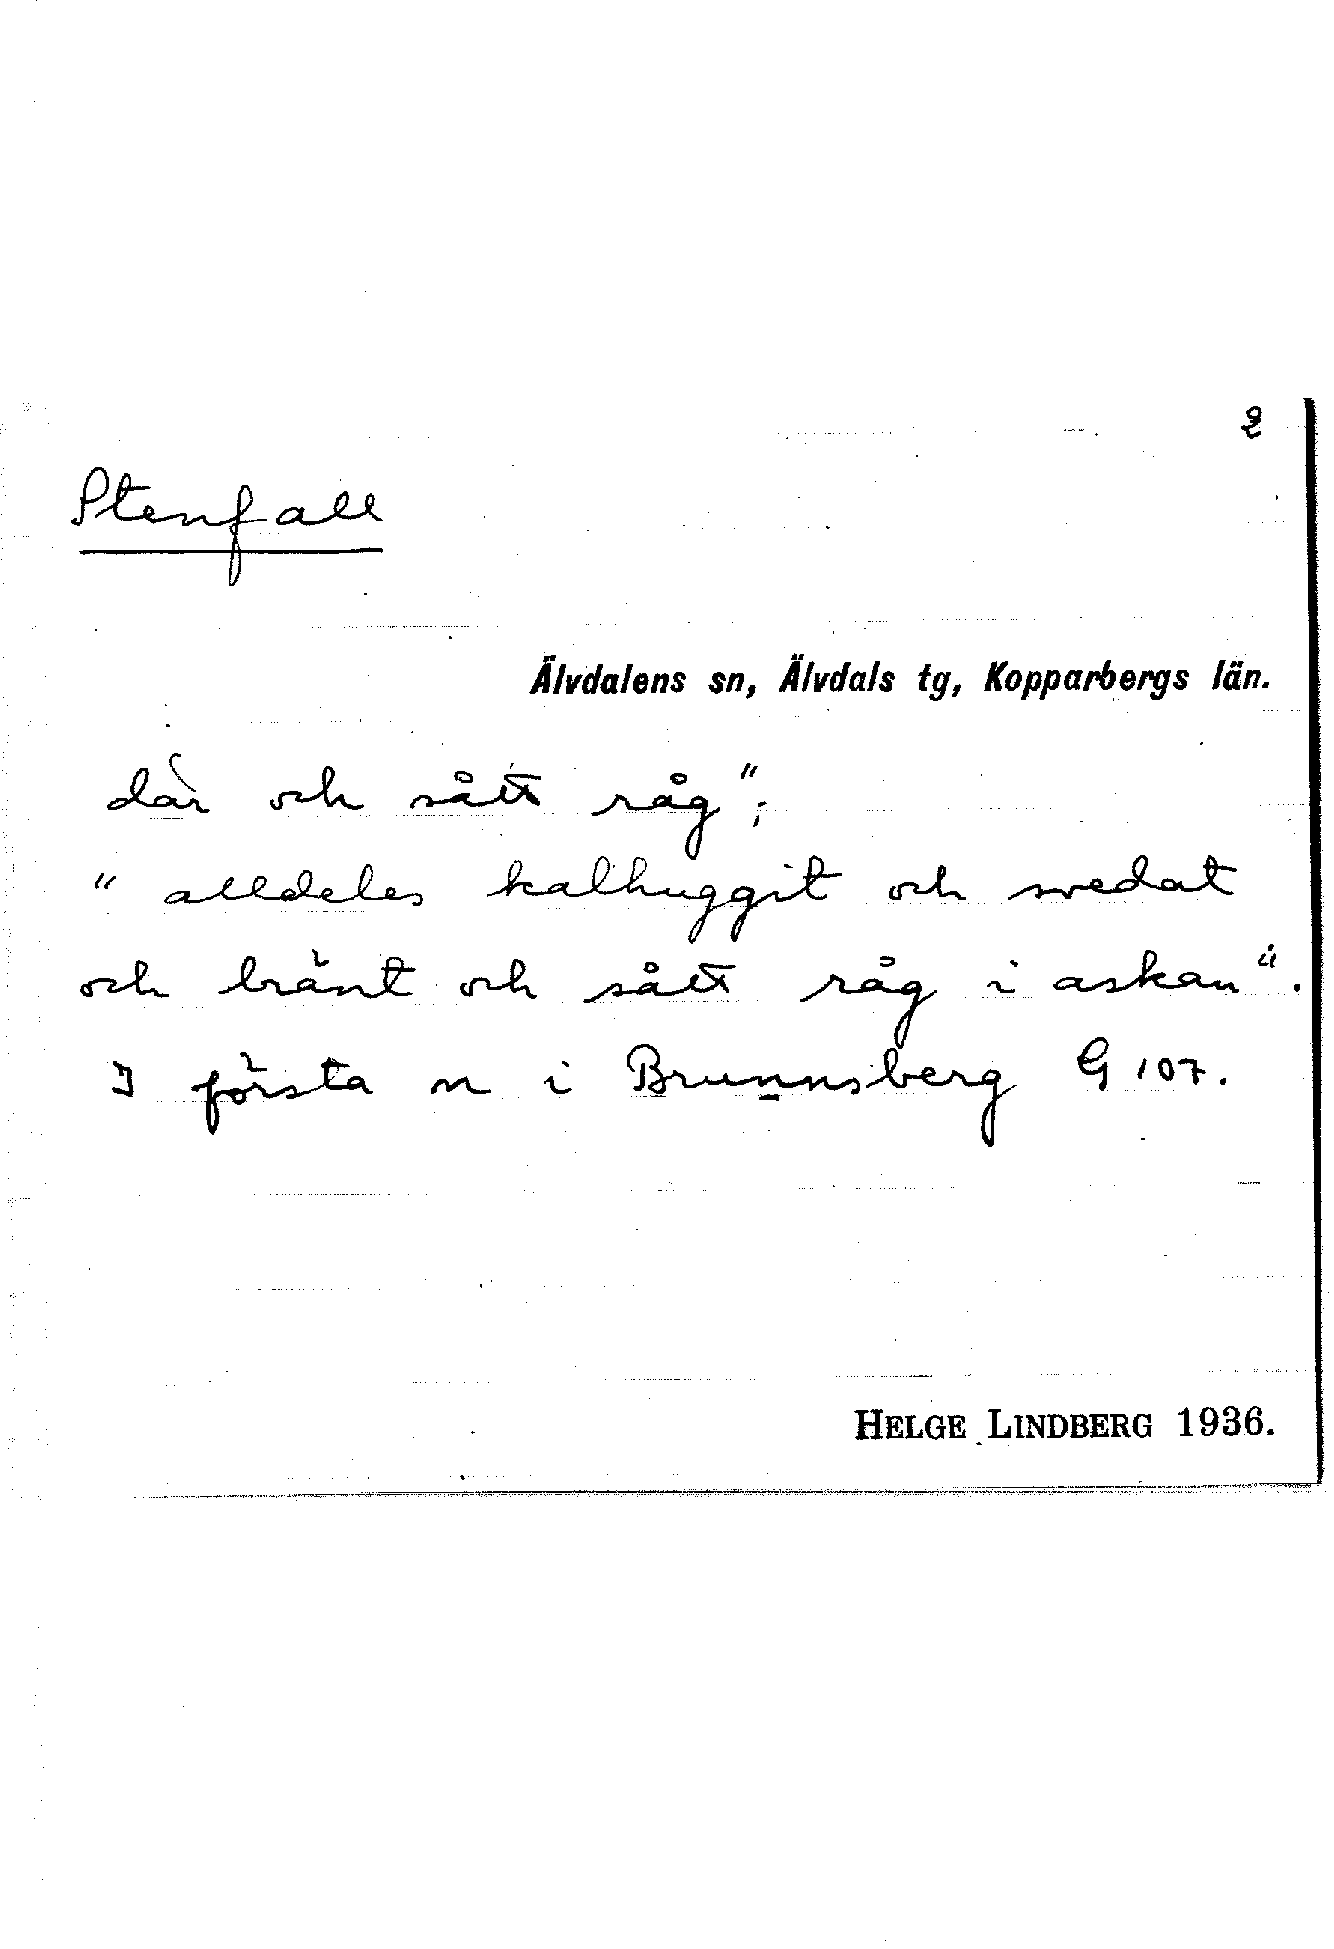 2
Stenfall
Älvdalens sn, Älvdals tg, Kopparbergs län.
där och sått råg";
"alldeles kalhuggit och svedat
och bränt och sått råg i askan".
I första n i Brunnsberg G 107.
HELGE LINDBERG 1936.